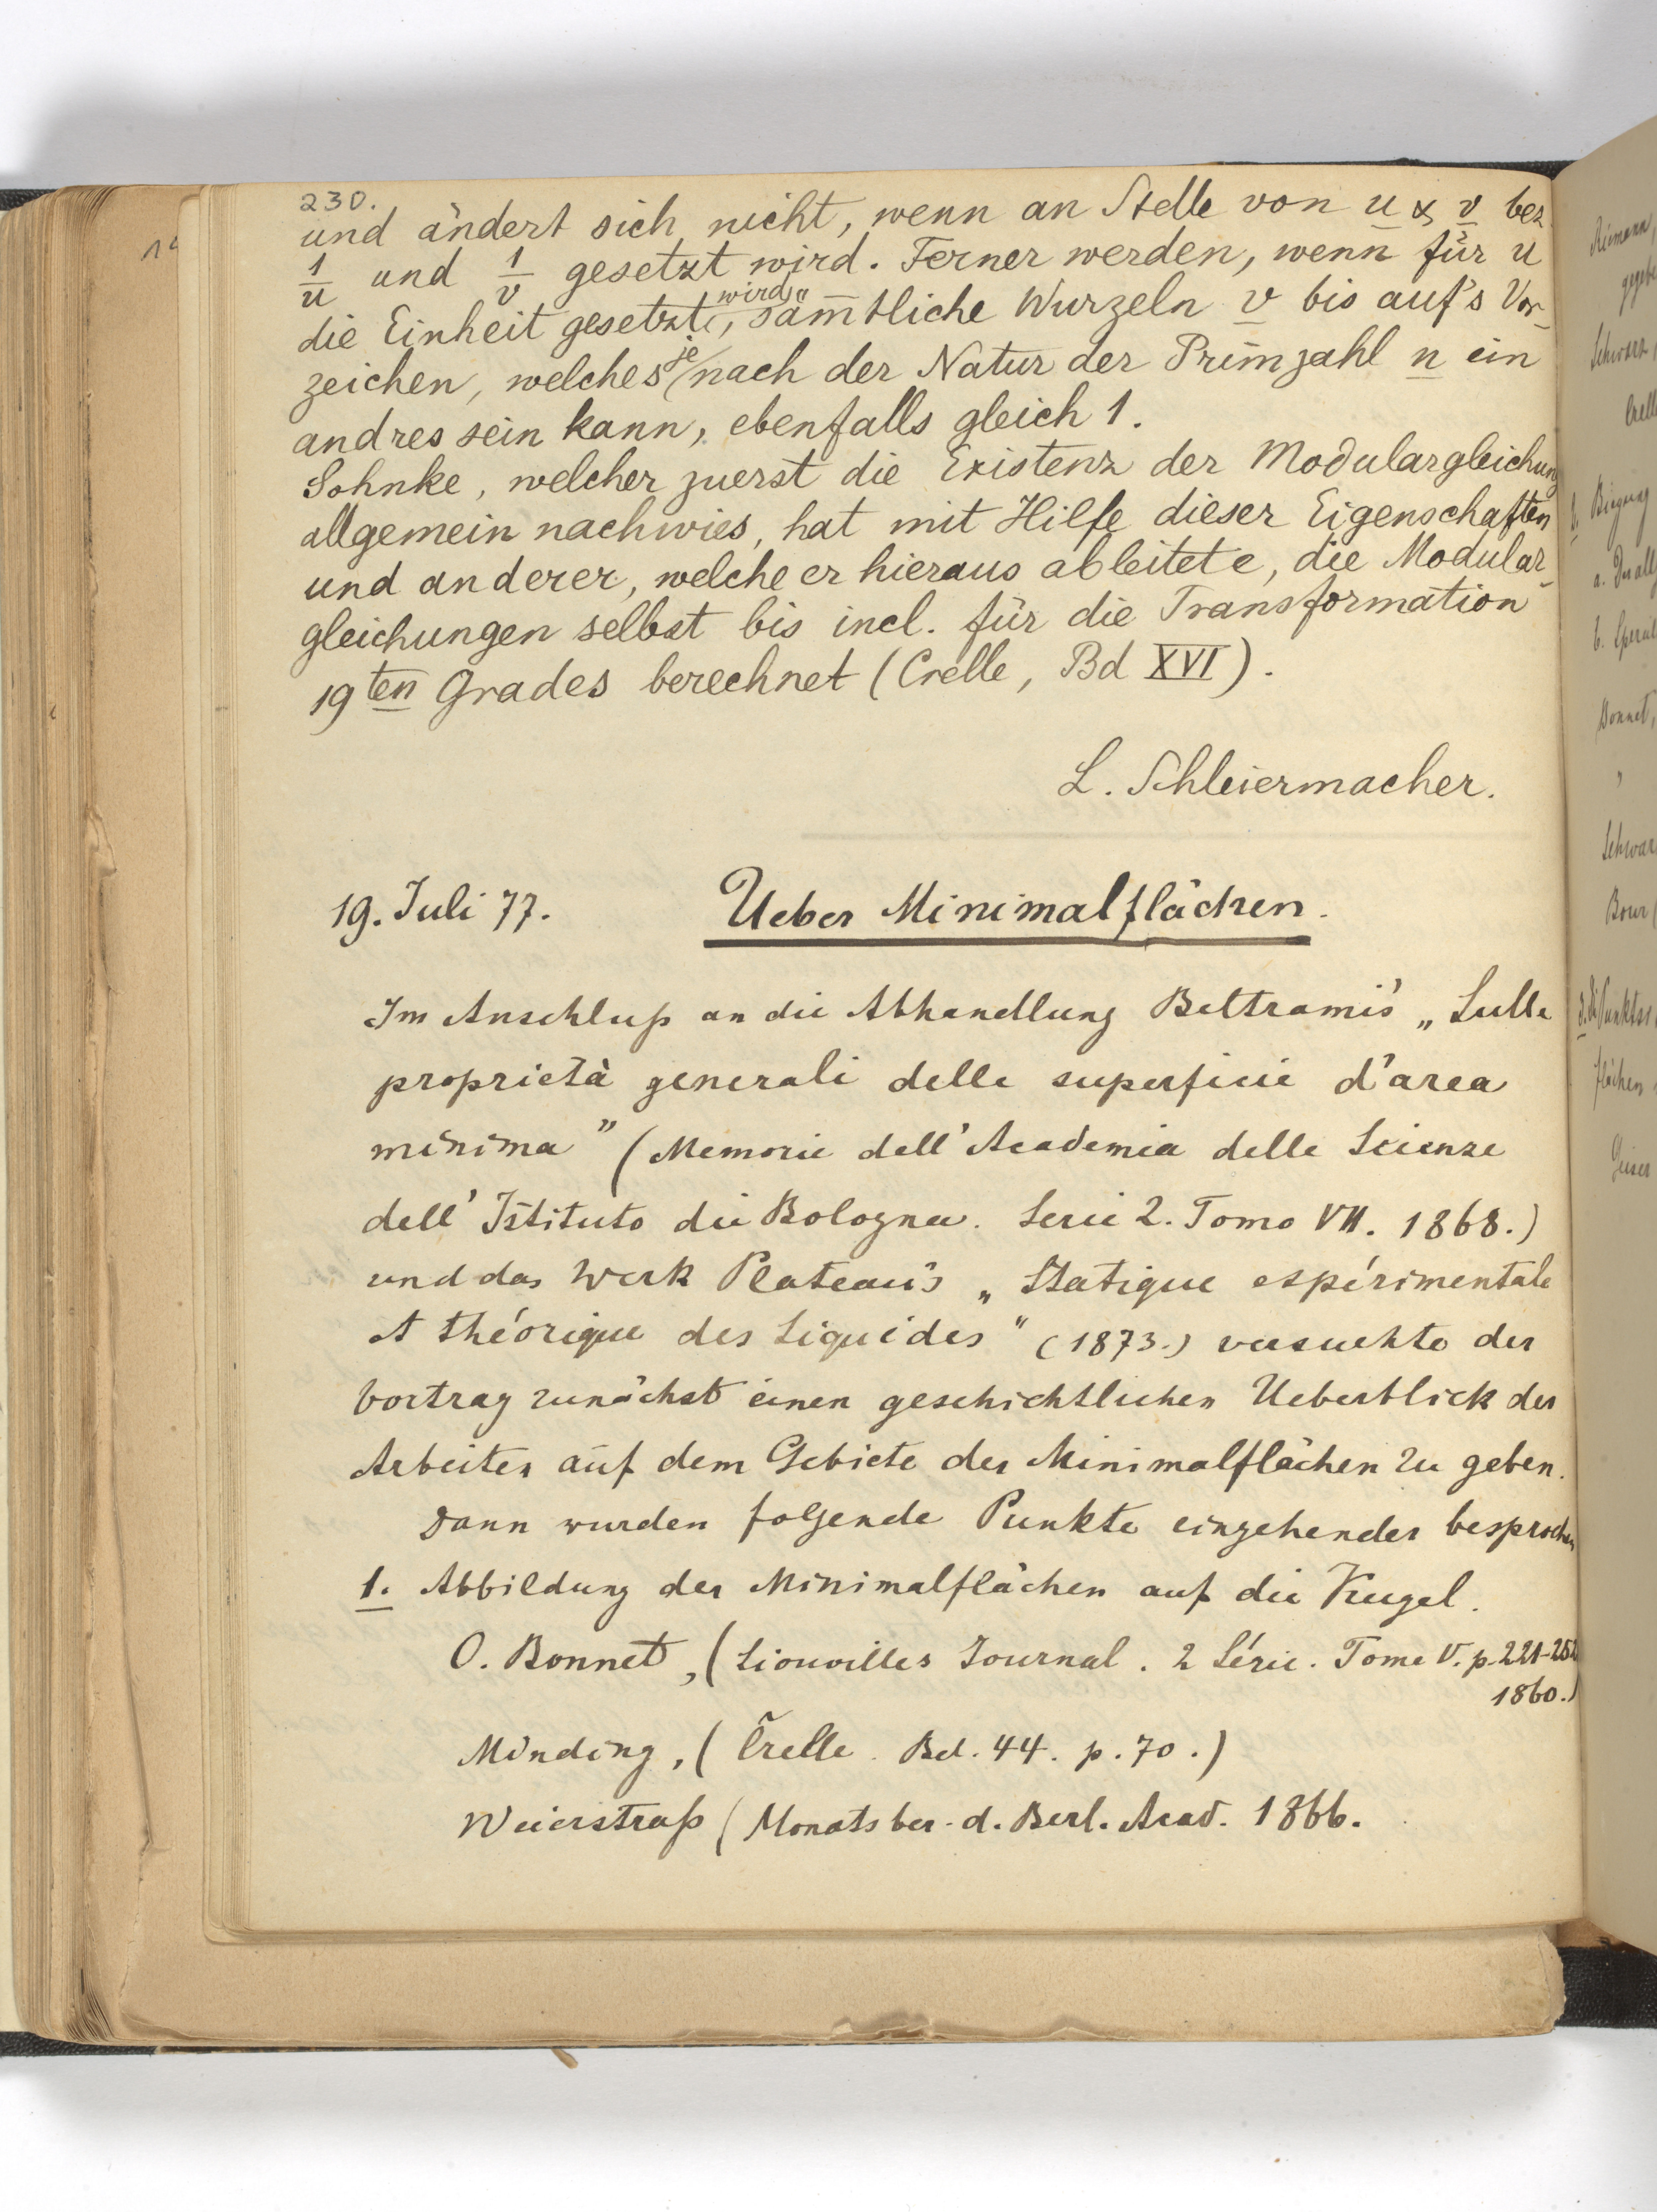 230.
und ändert sich nicht, wenn an Stelle von u & v bez
1/u und 1/v gesetzt wird. Ferner werden, wenn für u
die Einheit gesetzt wird, säm̅tliche Wurzeln v bis auf's Vor-
zeichen, welches je nach der Natur der Primzahl n ein
andres sein kann, ebenfalls gleich 1.
Sohnke, welcher zuerst die Existenz der Modulargleichung
allgemein nachwies, hat mit Hilfe dieser Eigenschaften
und anderer, welche er hieraus ableitete, die Modular-
gleichungen selbst bis incl. für die Transformation
19ten Grades berechnet (Crelle, Bd XVI).
L. Schleiermacher.
19. Juli 77. Ueber Minimalflächen.
Im Anschluß an die Abhandlung Beltrami's „Sulle
proprietà generali delle superficie d'area
minima" (Memorie dell'Academia delle Scienze
dell' Istituto di Bologna. Serie 2. Tomo VII. 1868.)
und das Werk Plateau's „Statique espérimentale
et théorique des Liquides" (1873.) versuchte der
Vortrag zunächst einen geschichtlichen Ueberblick der
Arbeiten auf dem Gebiete der Minimalflächen zu geben.
Dann wurden folgende Punkte eingehender besprochen
1. Abbildung der Minimalflächen auf die Kugel.
O. Bonnet, (Liouvilles Journal. 2 Série. Tome V. p. 221-252
1860.)
Minding, (Crelle. Bd. 44. p. 70.)
Weierstraß (Monatsber. d. Berl. Acad. 1866.
Riemann,
Schwarz,
Biegung
Bonnet,
Schwar
Bour (
flächen
Geiser